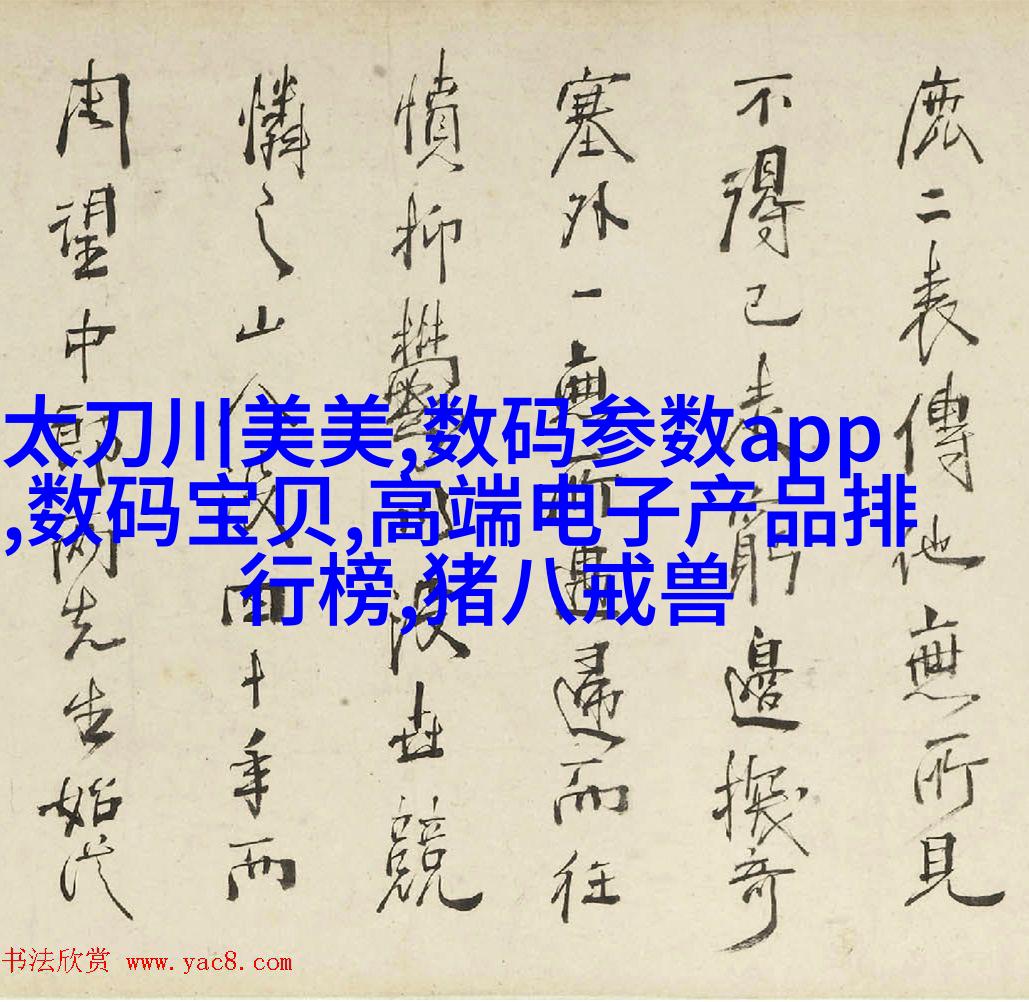 鹿二表傳他無所見
不得已走窮邊
塞外一無所遇歸而往
憤抑鬱沒世競
憐之山人四十年而
周望中郎先生始從
太刀川美美,数码参数app
,数码宝贝,高端电子产品排
行榜,猪八戒兽
书法欣赏 www.yac8.com